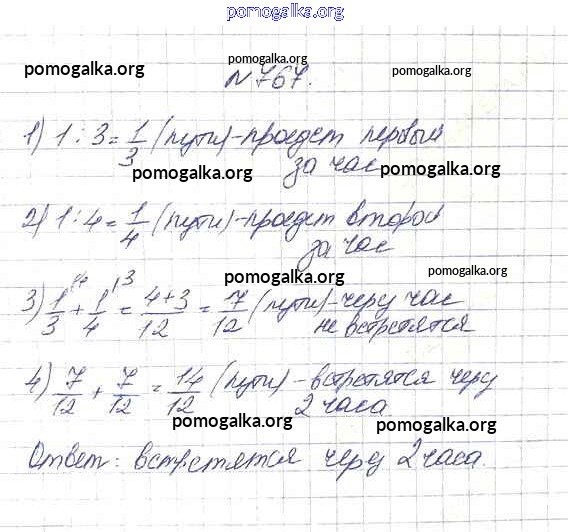 pomogalka.org
pomogalka.org
pomogalka.org
pomogalka.org
№767.
1) 1 : 3 = 1/3 (пути) - проедет первый
за час
pomogalka.org
pomogalka.org
2) 1 : 4 = 1/4 (пути) - проедет второй
за час
pomogalka.org
pomogalka.org
3) 1/3 ⁽⁴ + 1/4 ⁽³ = 4+3/12 = 7/12 (пути) - через час
не встретятся
pomogalka.org
4) 7/12 + 7/12 = 14/12 (пути) - встретятся через
2 часа
pomogalka.org
pomogalka.org
Ответ: встретятся через 2 часа.
pomogalka.org